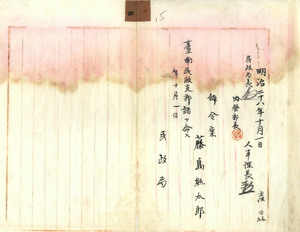 15
明治廿八年十月一日
民政局長
内務部長
人事課長
辞令案
藤島熊太郎
臺南民政支部詰ヲ命ス
年十月一日
民政局